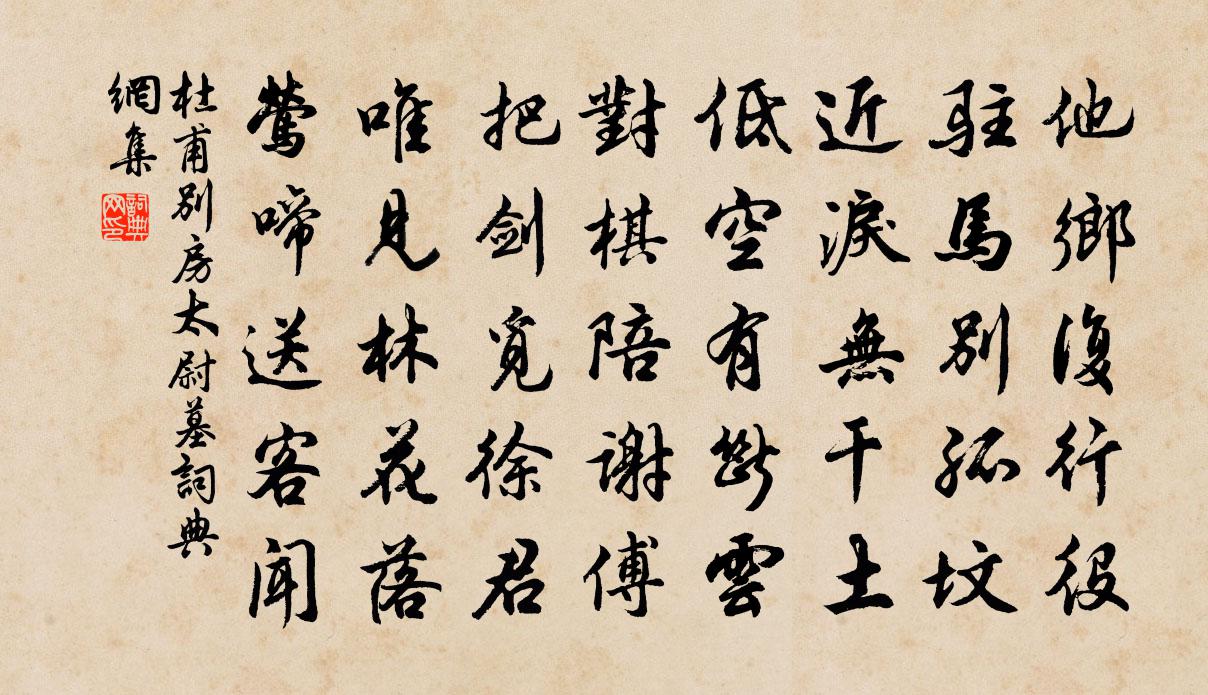 他鄉復行役
駐馬別孤墳
近淚無干土
低空有斷雲
對棋陪謝傅
把劍覓徐君
唯見林花落
鶯啼送客聞
杜甫別房太尉墓詞典
網集
詞典
网印